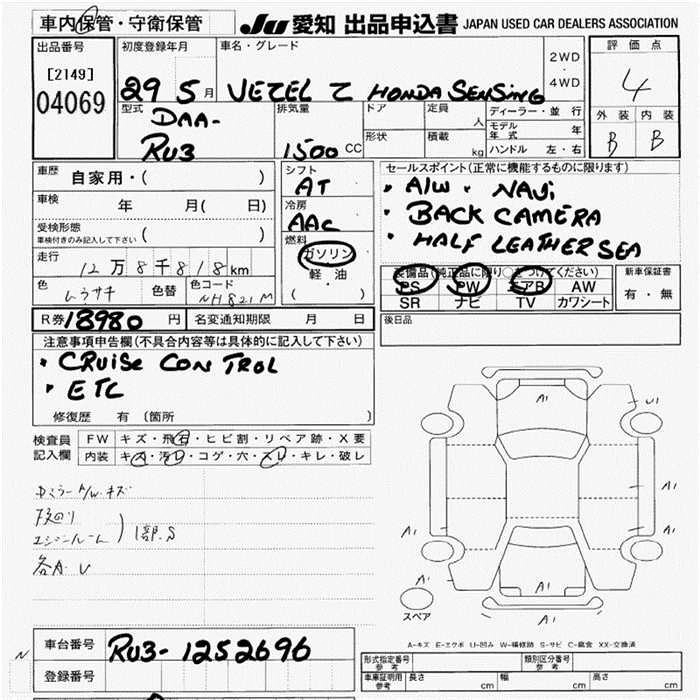 車内保管・守衛保管
JU 愛知 出品申込書 JAPAN USED CAR DEALERS ASSOCIATION
出品番号
[2149]
04069
初度登録年月
29 5月
車名・グレード
VEZEL Z HONDA SENSING
2WD
・
4WD
評価点
4
外装 内装
B B
型式
DAA-
RU3
排気量
1500 CC
ドア
定員
人
形状
積載
kg
ディーラー・並行
モデル年式 年
ハンドル 左・右
車歴
自家用・( )
車検
年 月( 日)
受検形態
車検付きのみ記入して下さい
( )
走行
12万8千818km
色
ムラサキ
色替
色コード
NH821M
シフト
AT
冷房
AAC
燃料
ガソリン
軽・油
( )
セールスポイント(正常に機能するものに限ります)
・A/W ・NAVi
・BACK CAMERA
・HALF LEATHER SEA
装備品(純正品に限り○をつけてください)
PS PW エアB AW
SR ナビ TV カワシート
新車保証書
有・無
R券 18980 円
名変通知期限 月 日
後日品
注意事項申告欄(不具合内容等は具体的に記入して下さい)
・CRUiSE CONTROL
・ETC
修復歴 有 〔箇所
検査員
記入欄
FW キズ・飛石・ヒビ割・リペア跡・X要
内装 キズ・汚レ・コゲ・穴・スレ・キレ・破レ
Dミラー A/W・キズ
下廻リ
エンジンルーム
1部.S
各A.U
A1
U1
A1
A1
A1
A1
A1
A1
A1
スペア
A-キズ E-エクボ U-凹み W-補修跡 S-サビ C-腐食 XX-交換済
N
車台番号
RU3-1252696
登録番号
形式指定番号
参考
類別区分番号
参考
車庫証明用
参考
長さ cm 幅 cm 高さ cm